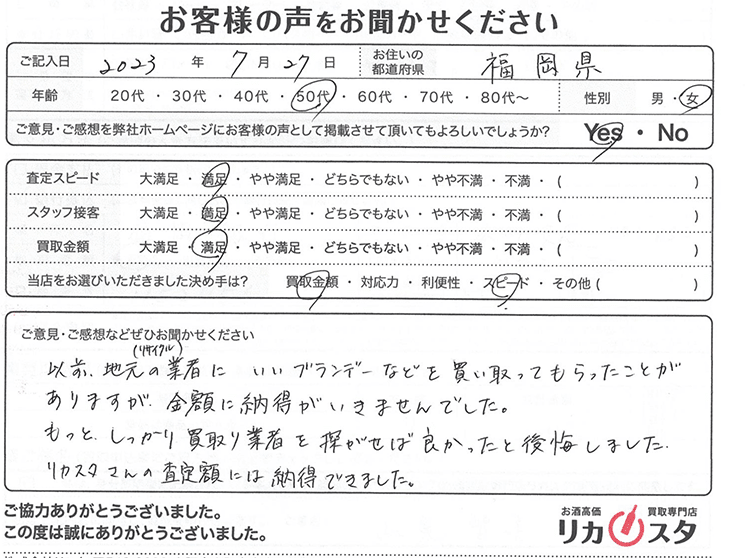 お客様の声をお聞かせください
ご記入日 2023 年 7 月 27 日 お住いの都道府県 福岡県
年齢 20代・30代・40代・50代・60代・70代・80代〜 性別 男・女
ご意見・ご感想を弊社ホームページにお客様の声として掲載させて頂いてもよろしいでしょうか? Yes・No
査定スピード 大満足・満足・やや満足・どちらでもない・やや不満・不満・( )
スタッフ接客 大満足・満足・やや満足・どちらでもない・やや不満・不満・( )
買取金額 大満足・満足・やや満足・どちらでもない・やや不満・不満・( )
当店をお選びいただきました決め手は? 買取金額・対応力・利便性・スピード・その他( )
ご意見・ご感想などぜひお聞かせください
(リサイクル)
以前、地元の業者に いいブランデーなどを買い取ってもらったことが
ありますが、金額に納得がいきませんでした。
もっと、しっかり買取り業者を探がせば良かったと後悔しました.
リカスタさんの査定額には納得できました。
ご協力ありがとうございました。
この度は誠にありがとうございました。
お酒高価 買取専門店
リカスタ